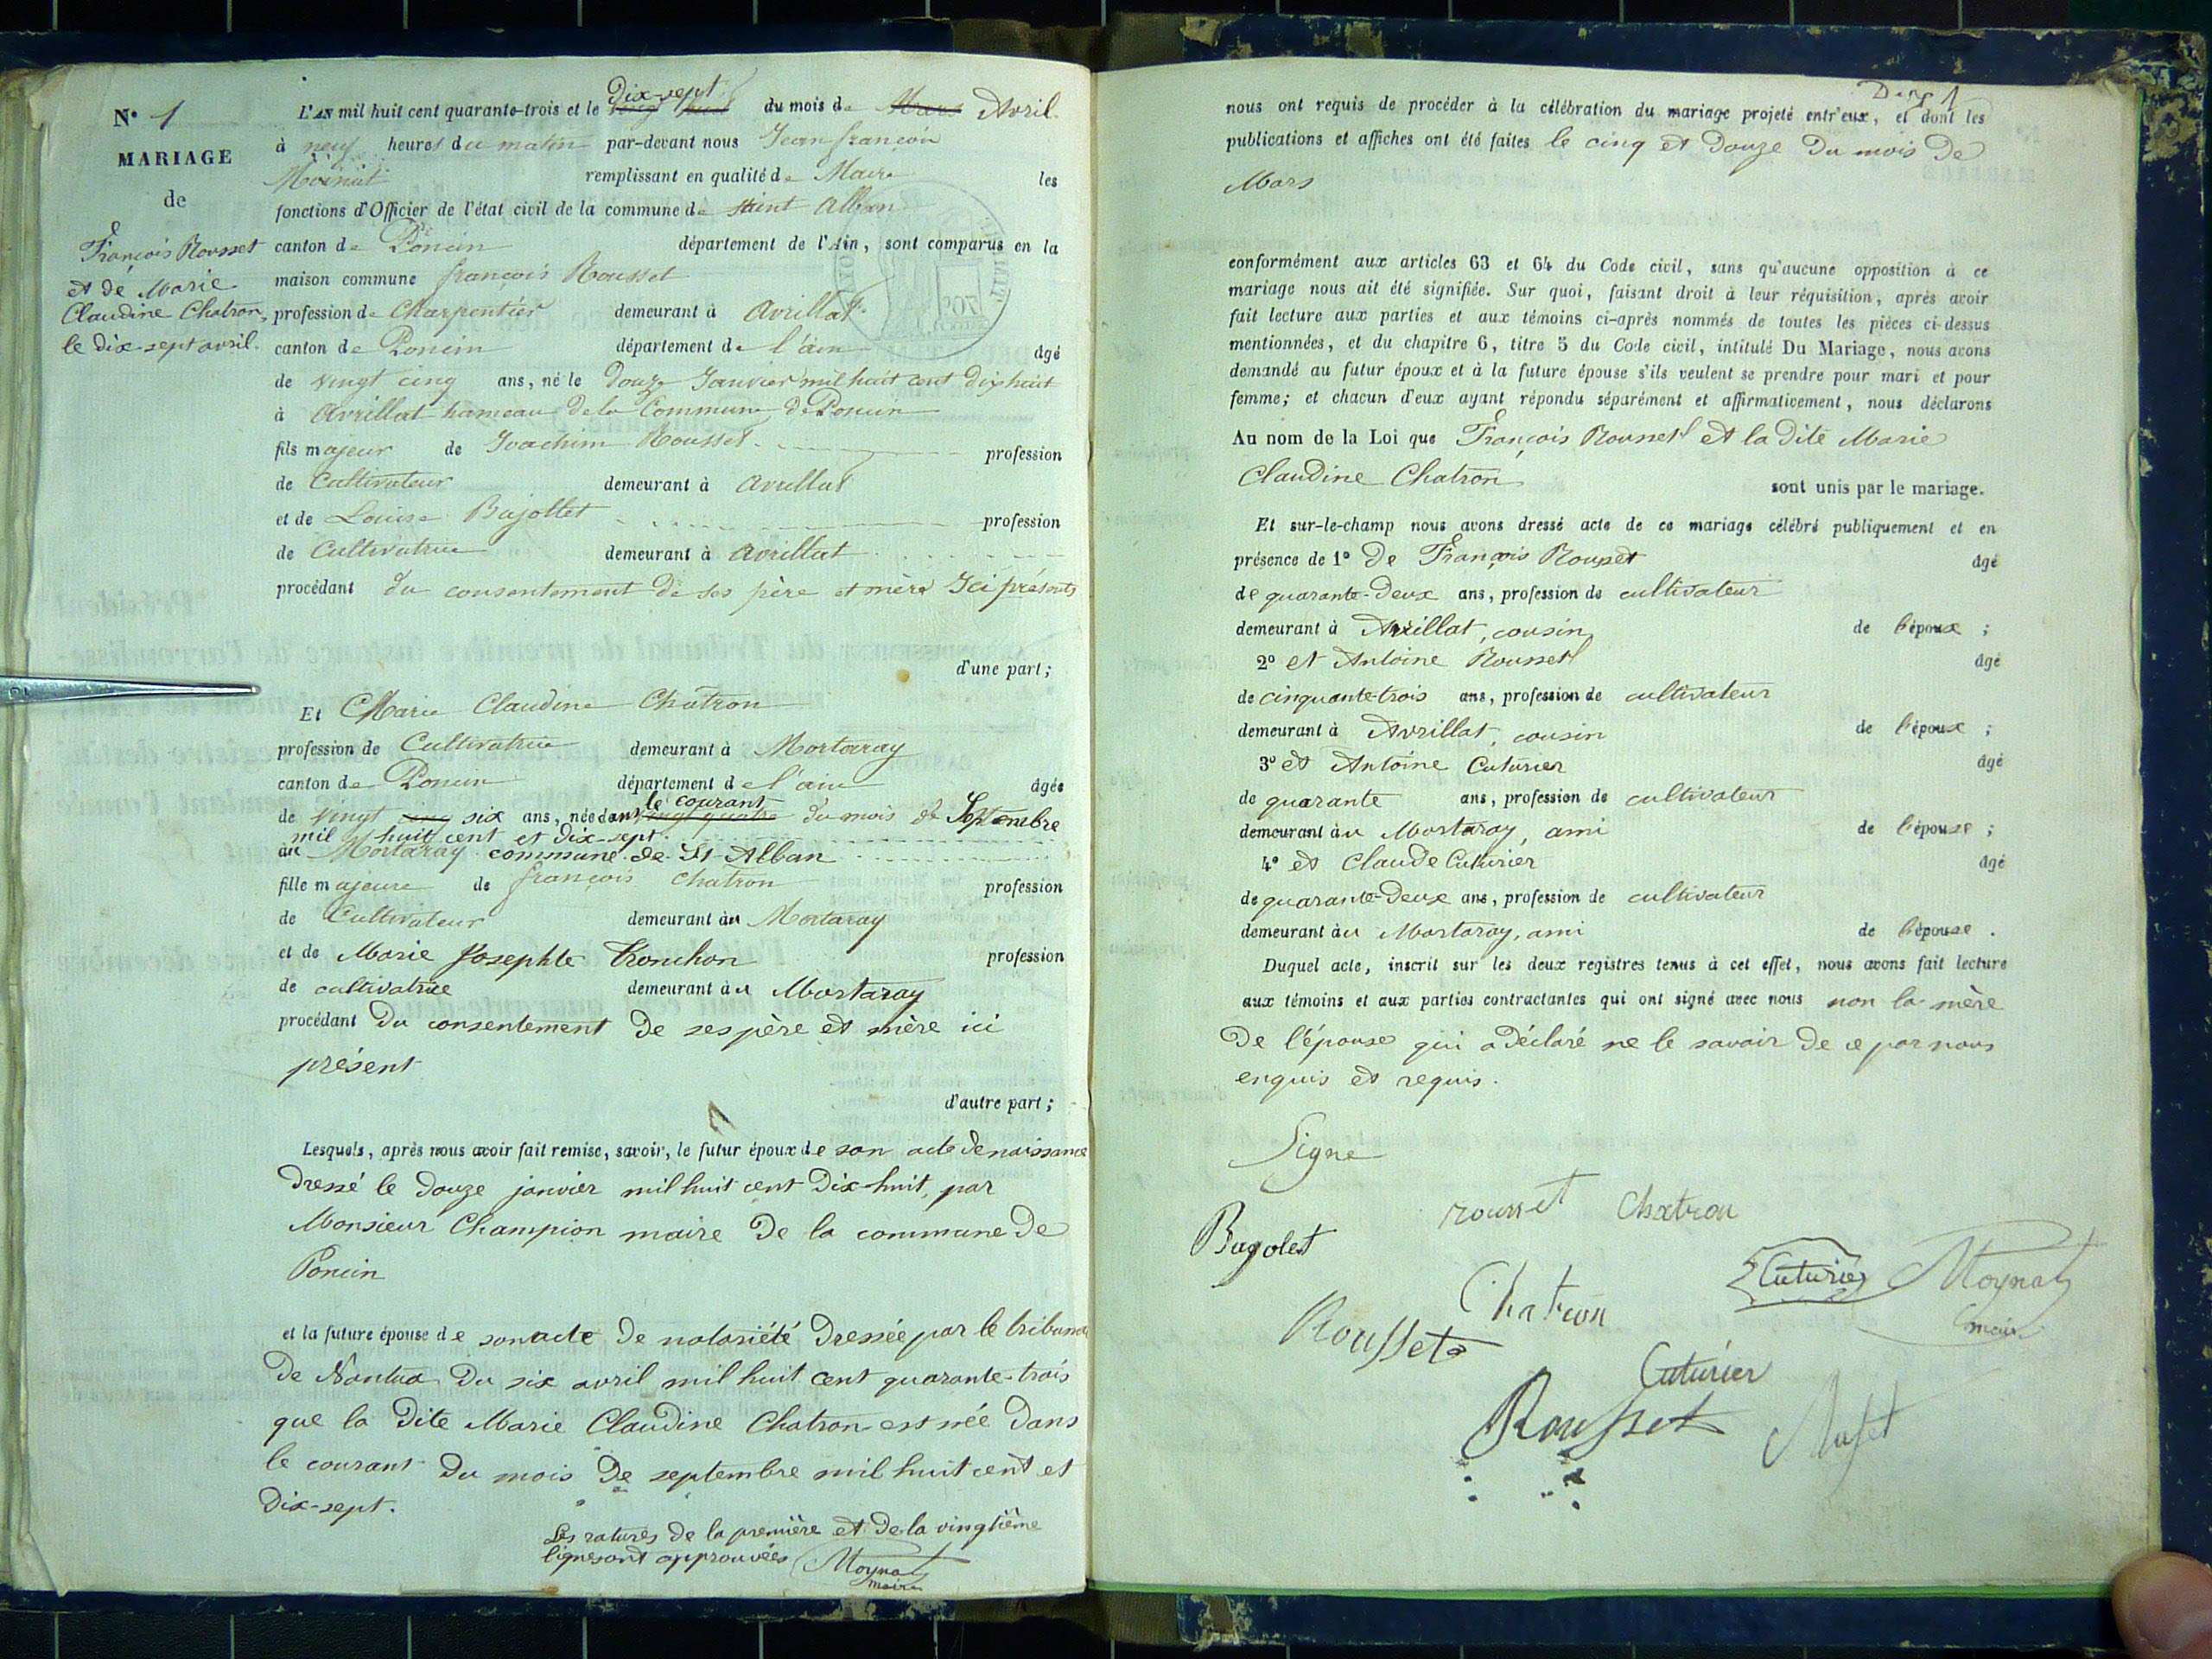 N° 1
MARIAGE
de
François Rousset
et de Marie
Claudine Chatron,
le dix-sept avril.
Dix-sept
L'AN mil huit cent quarante-trois et le vingt huit du mois de Mars Avril.
à neuf heures du matin par-devant nous Jean françois
Moinat remplissant en qualité de Maire les
fonctions d'Officier de l'état civil de la commune de Saint Alban
canton de Poncin département de l'Ain, sont comparus en la
maison commune françois Rousset
profession de Charpentier demeurant à Avrillat
canton de Poncin département de l'ain âgé
de vingt cinq ans, né le Douze Janvier mil huit cent dix huit
à Avrillat hameau de la Commune de Poncin
fils majeur de Joachim Rousset profession
de Cultivateur demeurant à Avrillat
et de Louise Bajollet profession
de Cultivatrice demeurant à Avrillat
procédant du consentement de ses père et mère Ici présents
d'une part;
Et Marie Claudine Chatron
profession de Cultivatrice demeurant à Mortaray
canton de Poncin département de l'ain âgée
le courant
de vingt cinq six ans, née dans vingt quatre du mois de Septembre
mil huit cent et dix-sept.
au Mortaray commune de St Alban
fille majeure de françois Chatron profession
de Cultivateur demeurant au Mortaray
et de Marie Josephte Tronchon profession
de cultivatrice demeurant au Mortaray
procédant du consentement de ses père et mère ici
présent
d'autre part;
Lesquels, après nous avoir fait remise, savoir, le futur époux de son acte de naissance
dressé le douze janvier mil huit cent dix-huit, par
Monsieur Champion maire de la commune de
Poncin
et la future épouse de son acte de notoriété dressée par le tribunal
de Nantua du six avril mil huit cent quarante-trois
que la dite Marie Claudine Chatron est née dans
le courant du mois de septembre mil huit cent et
dix-sept.
Les ratures de la première et de la vingtième
ligne sont approuvées Moynat
maire
1
nous ont requis de procéder à la célébration du mariage projeté entr'eux, et dont les
publications et affiches ont été faites le cinq et douze du mois de
Mars
conformément aux articles 63 et 64 du Code civil, sans qu'aucune opposition à ce
mariage nous ait été signifiée. Sur quoi, faisant droit à leur réquisition, après avoir
fait lecture aux parties et aux témoins ci-après nommés de toutes les pièces ci-dessus
mentionnées, et du chapitre 6, titre 5 du Code civil, intitulé Du Mariage, nous avons
demandé au futur époux et à la future épouse s'ils veulent se prendre pour mari et pour
femme; et chacun d'eux ayant répondu séparément et affirmativement, nous déclarons
Au nom de la Loi que François Rousset et la dite Marie
Claudine Chatron sont unis par le mariage.
Et sur-le-champ nous avons dressé acte de ce mariage célébré publiquement et en
présence de 1° De François Rousset âgé
de quarante-deux ans, profession de cultivateur
demeurant à Avrillat, cousin de l'époux;
2° et Antoine Rousset âgé
de cinquante-trois ans, profession de cultivateur
demeurant à Avrillat, cousin de l'époux;
3° et Antoine Cuturier âgé
de quarante ans, profession de cultivateur
demeurant au Mortaray, ami de l'épouse;
4° et Claude Cuturier âgé
de quarante-deux ans, profession de cultivateur
demeurant au Mortaray, ami de l'épouse.
Duquel acte, inscrit sur les deux registres tenus à cet effet, nous avons fait lecture
aux témoins et aux parties contractantes qui ont signé avec nous non la mère
de l'épouse qui a déclaré ne le savoir de ce par nous
enquis et requis.
Signe
rousset Chatron
Bagolet
Cuturier Moynat
maire
Chatron
Rousset
Cuturier
Rousset